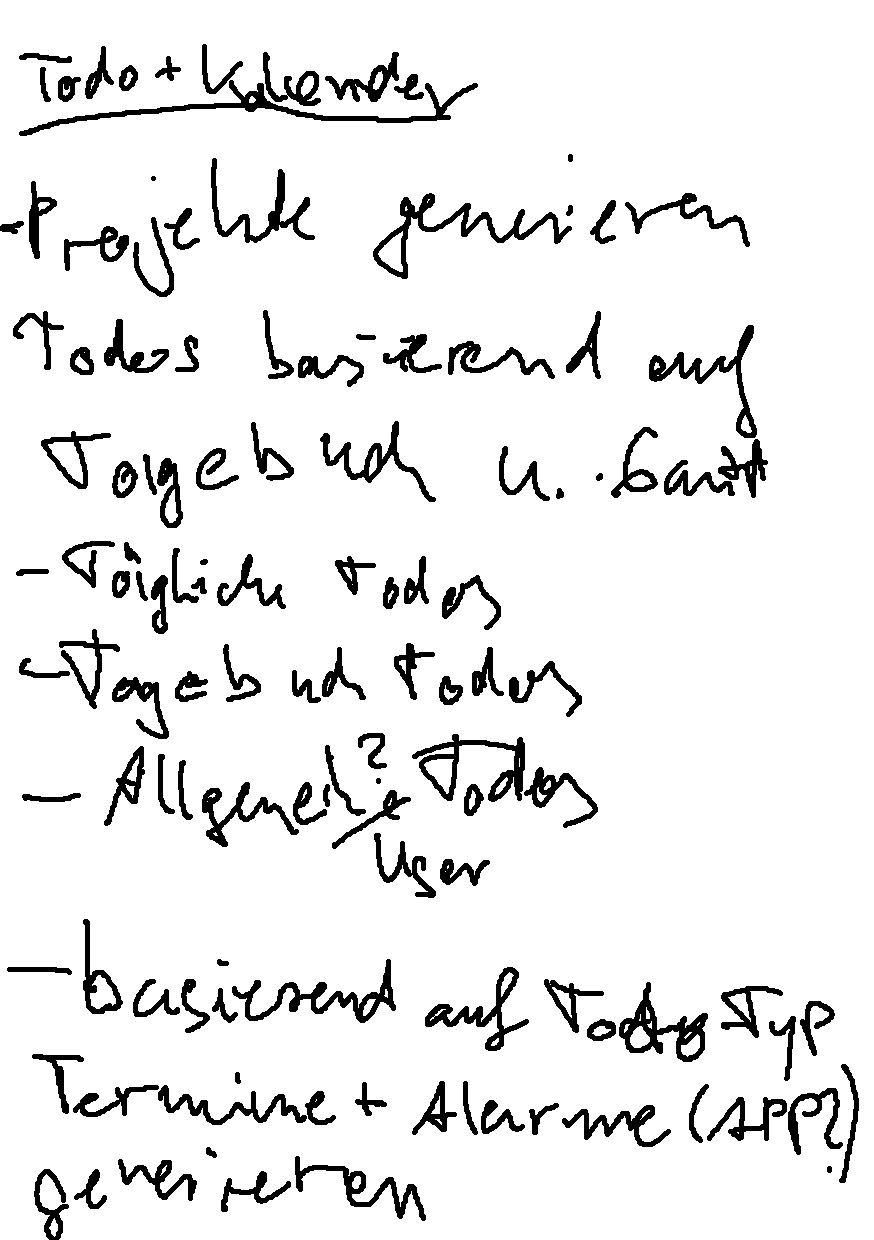 Todo + Kalender
- Projekte generieren
Todos basierend auf
Tagebuch u. Gantt
- Tägliche Todos
- Tagebuch Todos
- Allgemeine? Todos
User
- basierend auf Todo Typ
Termine + Alarme (APP?)
generieren